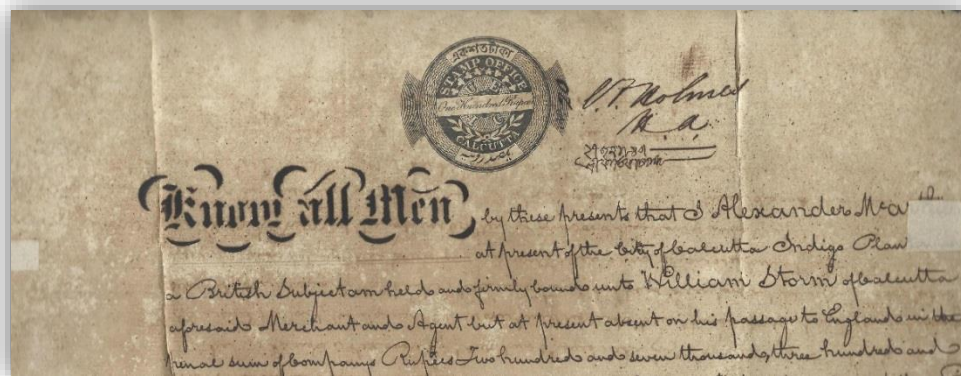 একশতটাকা
STAMP OFFICE
One Hundred Rupees
CALCUTTA
یکصد روپیہ
Know all Men by these presents that I Alexander
at present of the City of Calcutta Indigo Plan
a British Subject am held and firmly bound unto William Storm of Calcutta
aforesaid Merchant and Agent but at present absent on his passage to England in the
penal sum of Companys Rupees Two hundred and seven thousand, three hundred and